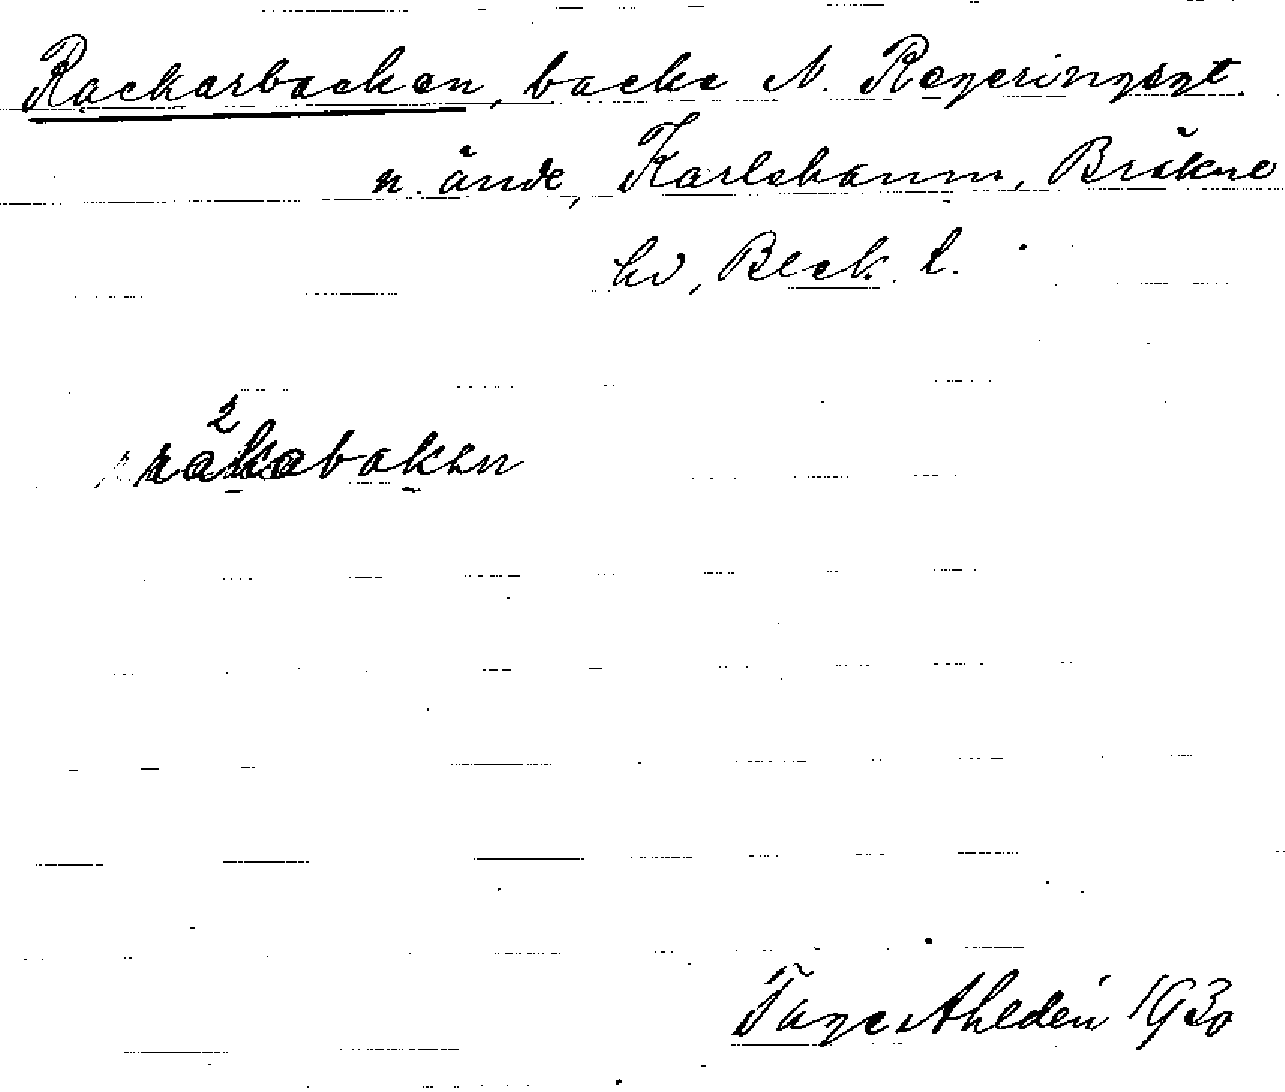 Rackarbacken, backe N. Regeringsgt.
n. ände, Karlshamn, Bräkne
hd, Blek. l.
rà²kabakɛn
Tage Ahldén 1930